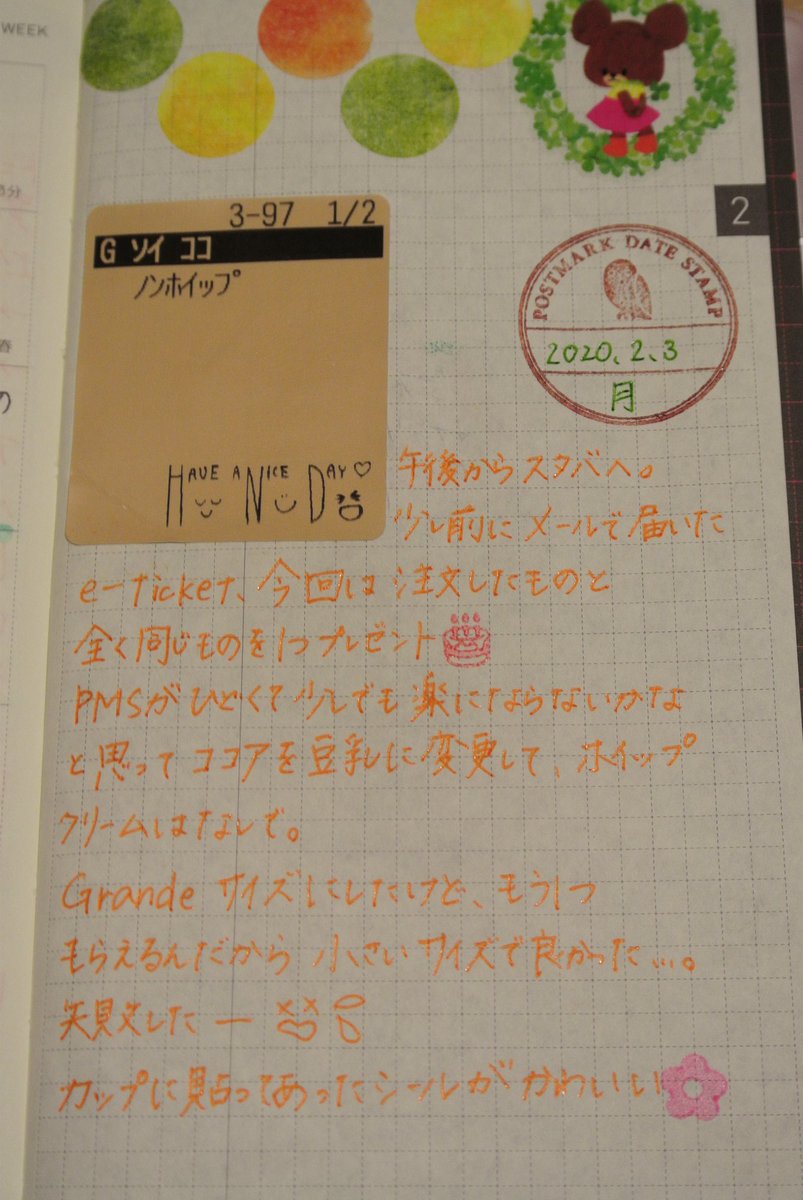 WEEK
2
3-97 1/2
G ソイ ココ
ノンホイップ
HAVE A NICE DAY♡
POSTMARK DATE STAMP
2020.2.3
月
午後からスタバへ。
少し前にメールで届いた
e-ticket、今回は注文したものと
全く同じものを1つプレゼント
PMSがひどくて少しでも楽にならないかな
と思ってココアを豆乳に変更して、ホイップ
クリームはなしで。
Grande サイズにしたけど、もう1つ
もらえるんだから 小さいサイズで良かった…。
失敗したー
カップに貼ってあったシールがかわいい